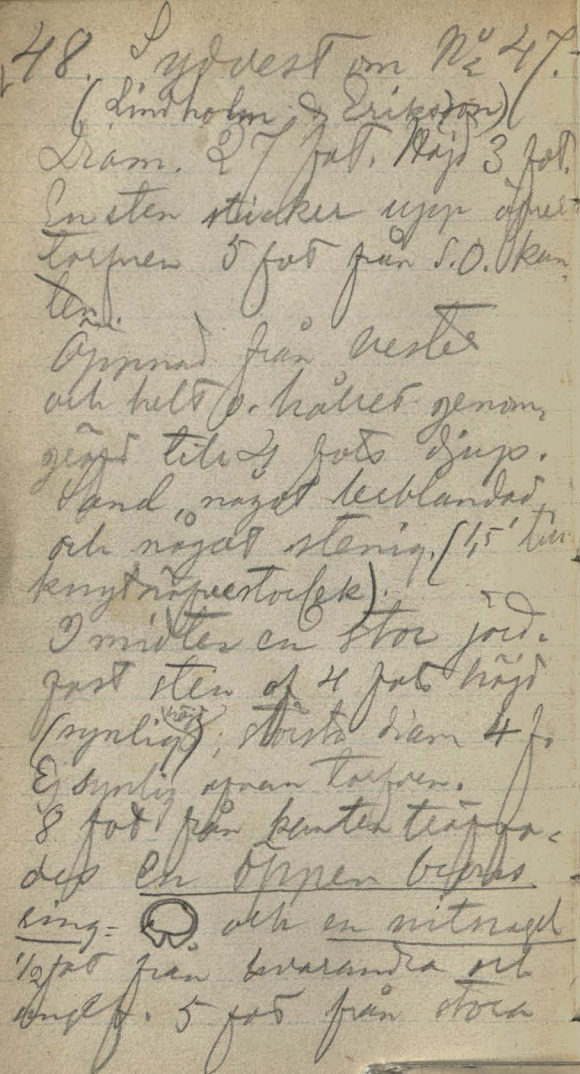 48. Sydvest om No 47.
(Lindholm & Erikson)
Diam. 27 fot. Höjd 3 fot.
En sten sticker upp öfver
torfven 5 fot från S.O. kan-
ten.
Öppnad från vester
och helt o. hållet genom-
gräfd till 4 fots djup.
Sand, något lerblandad
och något stenig. (1,5' till
knytnäfvestorlek).
I midten en stor jord-
fast sten af 4 fots höjd
(synlig höjd); största diam 4 f.
Ej synlig ofvan torfven.
8 fot från kanten träffa-
des en öppen brons
ring - och en nitnagel
1/2 fot från hvarandra och
5 fot från stora